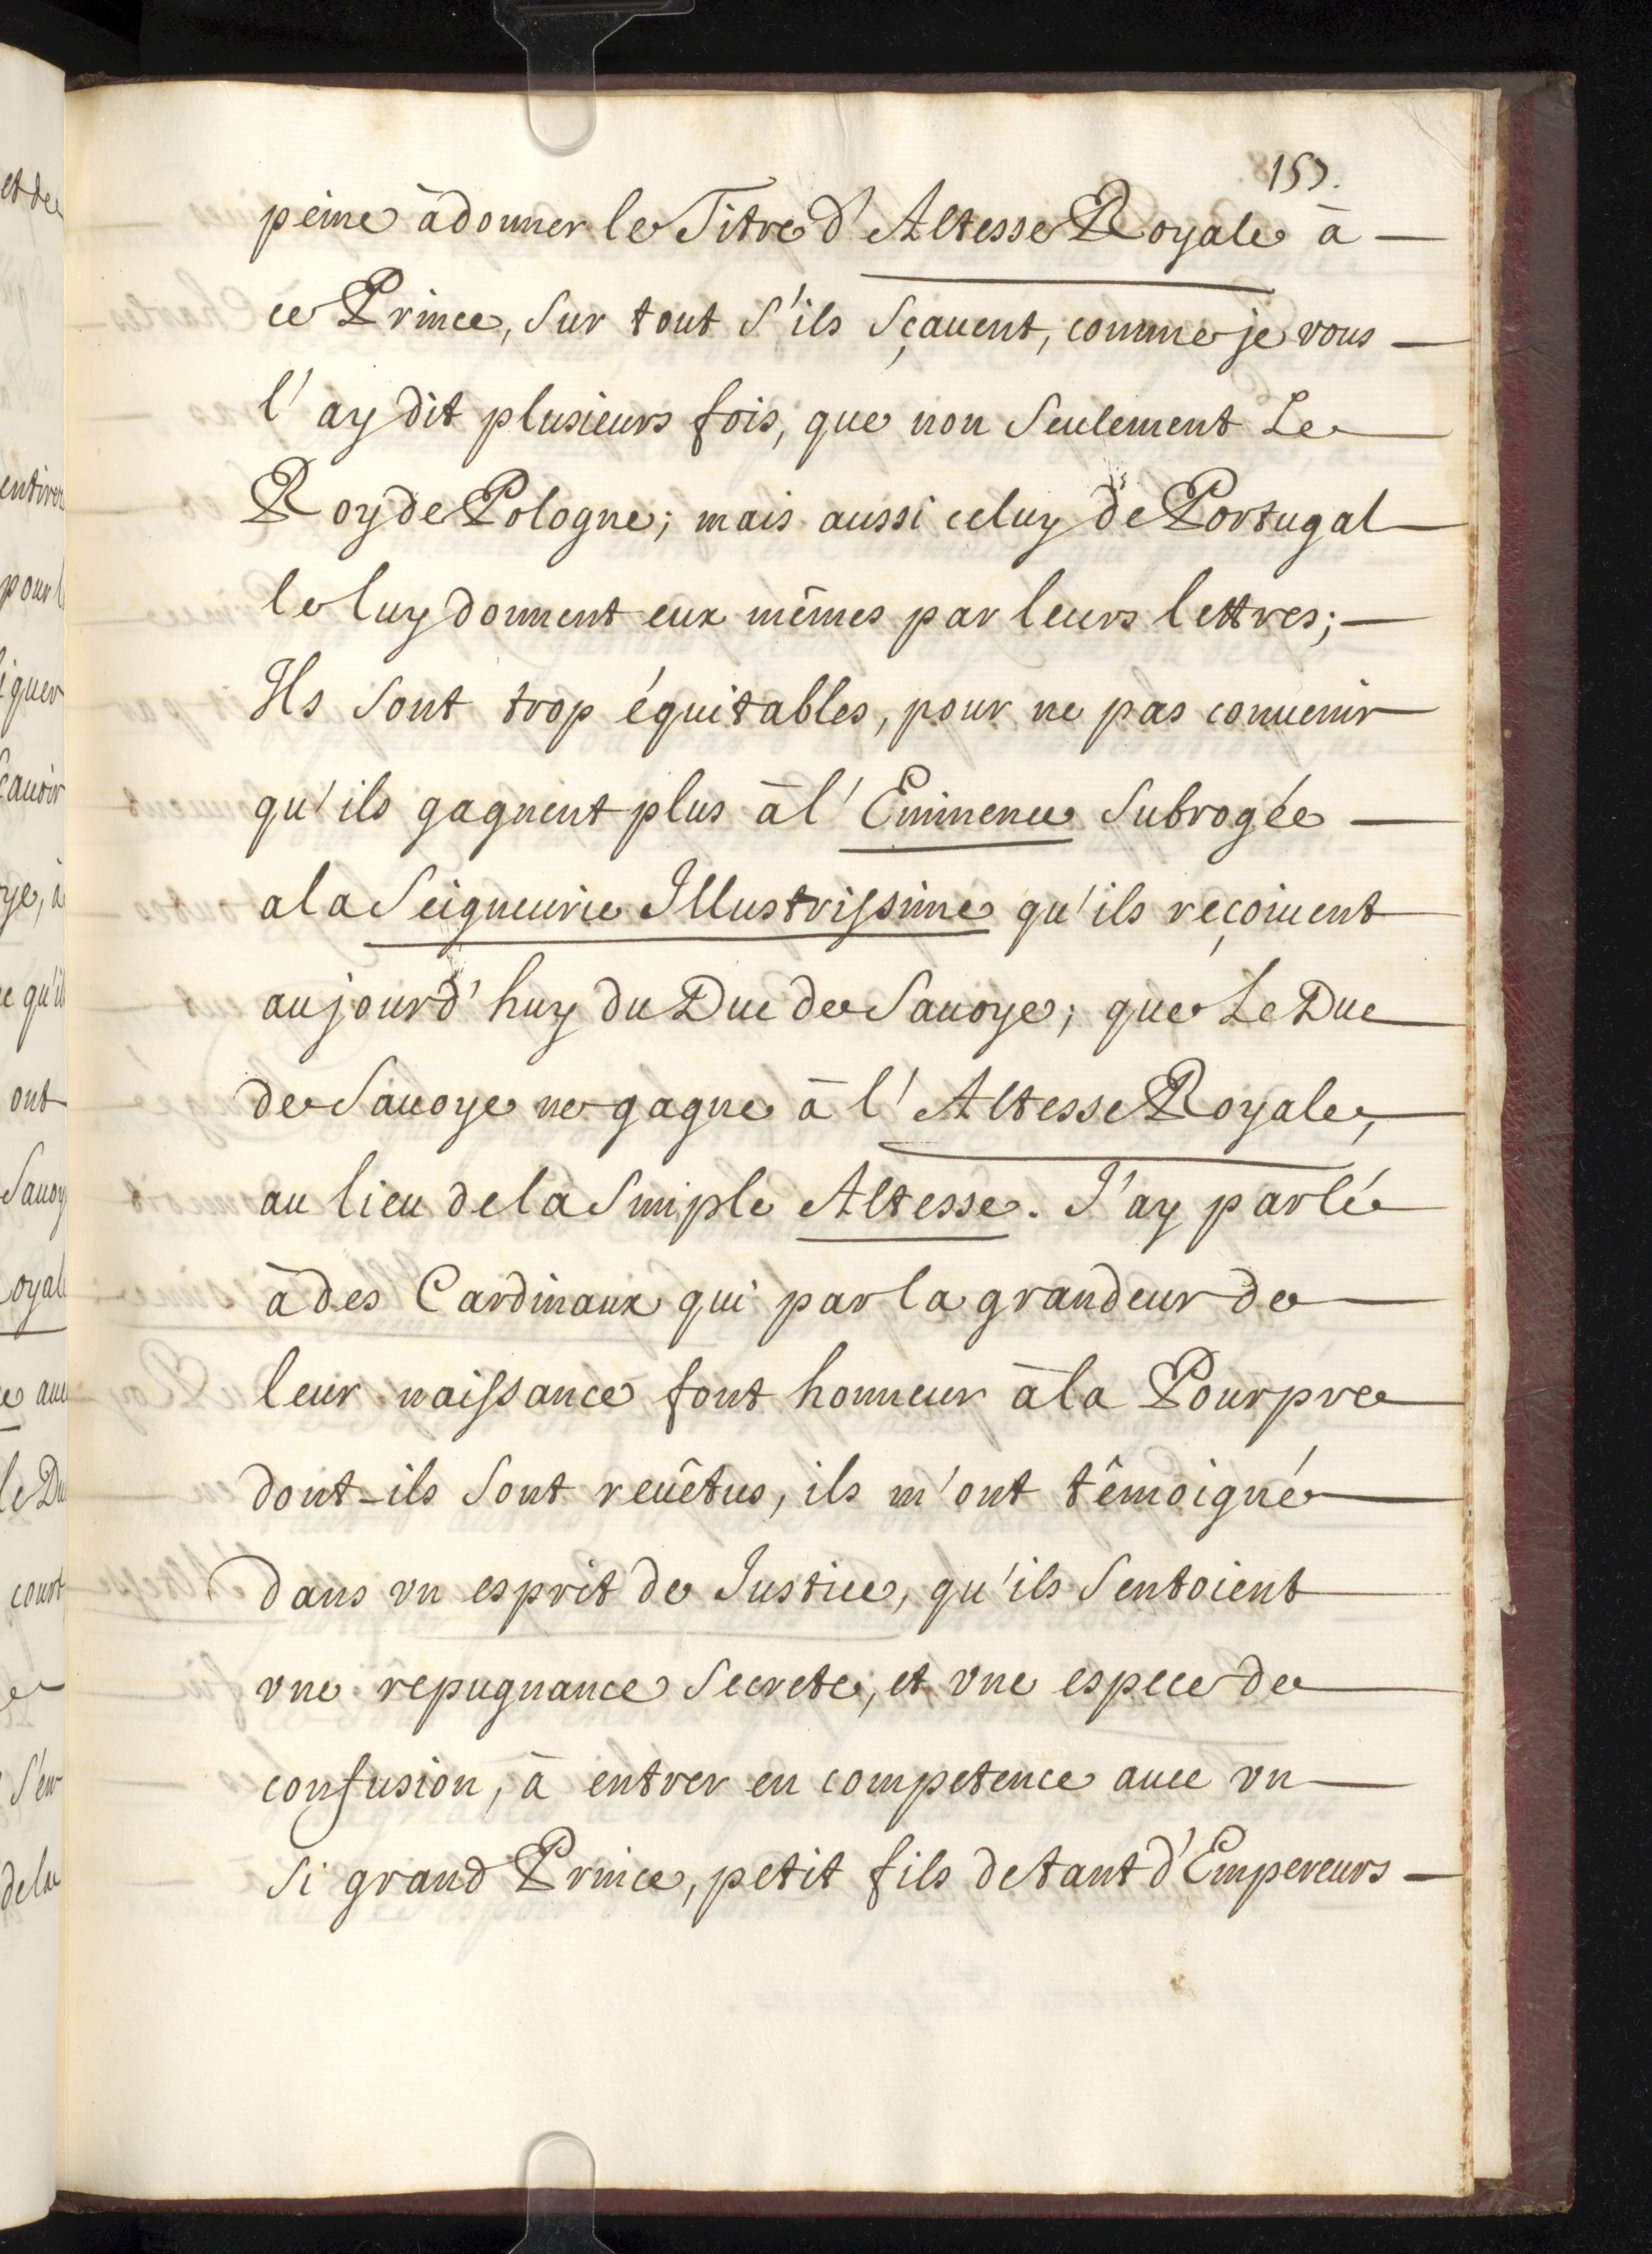 157.
peine à donner le Titre d'Altesse Royale à —
ce Prince, sur tout s'ils sçauent, comme je vous —
l'ay dit plusieurs fois, que non seulement Le
Roy de Pologne; mais aussi celuy de Portugal
le luy donnent eux mêmes par leurs lettres; —
Ils sont trop équitables, pour ne pas conuenir
qu'ils gagnent plus à l'Eminence subrogée —
a la Seigneurie Illustrissime qu'ils reçoiuent
aujourd'huy du Duc de Sauoye; que Le Duc
de Sauoye ne gagne à l'Altesse Royale,
au lieu de la simple Altesse. J'ay parlé
à des Cardinaux qui par la grandeur de
leur naissance font honneur à la Pourpre
dont-ils sont reuêtus, ils m'ont têmoigné
dans vn esprit de Justice, qu'ils sentoient
vne rêpugnance secrete, et vne espece de
confusion, à entrer en competence auec vn
si grand Prince, petit fils de tant d'Empereurs —